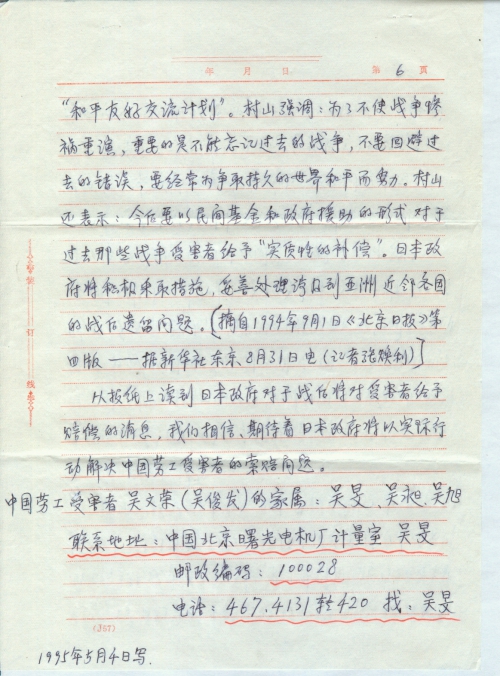 年 月 日 第 6 页
“和平友好交流计划”。村山强调:为了不使战争惨
祸重演,重要的是不能忘记过去的战争,不要回避过
去的错误,要经常为争取持久的世界和平而努力。村山
还表示:今后要以民间基金和政府援助的形式对于
过去那些战争受害者给予“实质性的补偿”。日本政
府将积极采取措施,妥善处理涉及到亚洲近邻各国
的战后遗留问题。[摘自1994年9月1日《北京日报》第
四版——据新华社东京8月31日电(记者张焕利)]
从报纸上读到日本政府对于战后将对受害者给予
赔偿的消息,我们相信、期待着日本政府将以实际行
动解决中国劳工受害者的索赔问题。
中国劳工受害者吴文荣(吴俊发)的家属:吴旻、吴昶、吴旭
联系地址:中国北京曙光电机厂计量室 吴旻
邮政编码:100028
电话:467.4131转420 找:吴旻
(367)
1995年5月4日写.
装 订 线